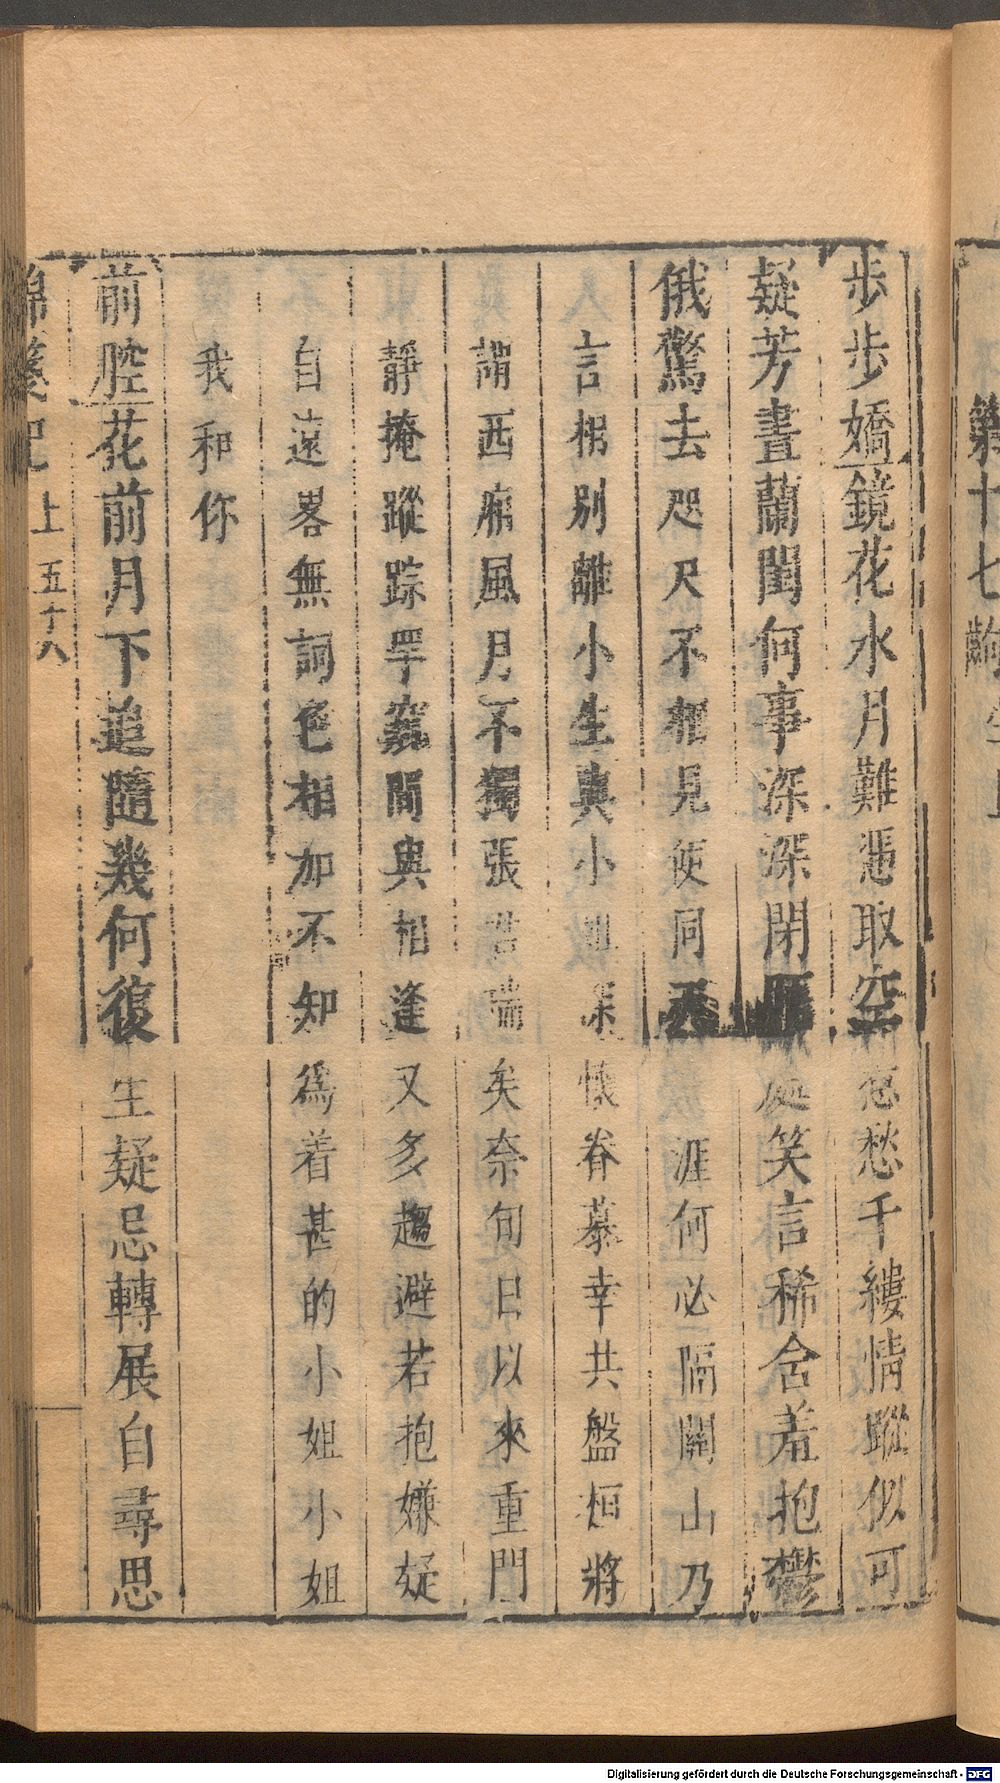 第十七齣
步步嬌鏡花水月難憑取空惹愁千縷情蹤似可
疑芳晝蘭閨何事深深閉 處笑言稀含羞抱鬱
俄驚去咫尺不相見便同天涯何必隔關山乃
言相別離小生與小姐深懷眷慕幸共盤桓將
謂西廂風月不獨張君瑞矣奈旬日以來重門
靜掩蹤跡罕窺間與相逢又多趨避若抱嫌疑
自遠畧無詞色相加不知爲着甚的小姐小姐
我和你
前腔花前月下追隨幾何復生疑忌轉展自尋思
錦箋記 上 五十八
Digitalisierung gefördert durch die Deutsche Forschungsgemeinschaft - DFG